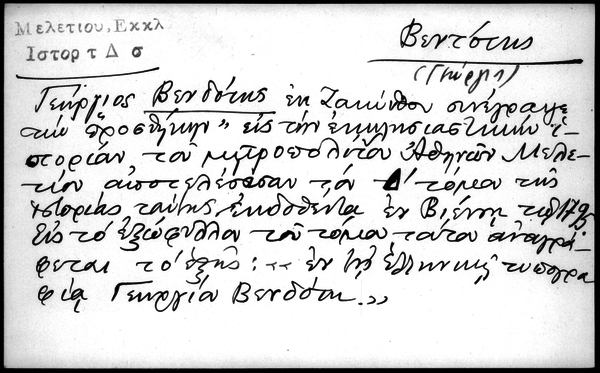 Μελετίου, Εκκλ
Ιστορ τ Δ σ
Βεντότης
(Γεώργιος)
Γεώργιος Βενδότης ἐκ Ζακύνθου συνέγραψε
τὴν "προσθήκην" εἰς τὴν ἐκκλησιαστικὴν ἱ-
στορίαν τοῦ μητροπολίτου Ἀθηνῶν Μελε-
τίου ἀποτελέσασαν τὸν Δ' τόμον τῆς
ἱστορίας ταύτης ἐκδοθέντα ἐν Βιέννῃ τῷ 1795
Εἰς τὸ ἐξώφυλλον τοῦ τόμου τούτου ἀναγρά-
φεται τὸ ἑξῆς: "ἐν τῇ ἑλληνικῇ τυπογρα
φίᾳ Γεωργίου Βενδότη."